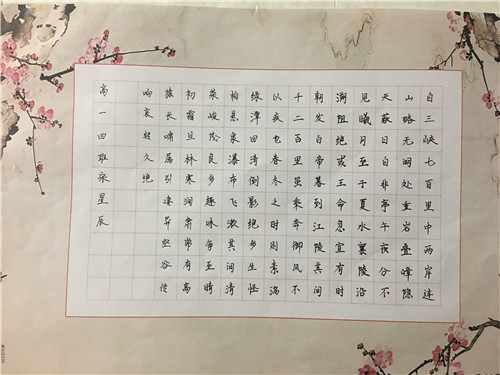 自三峡七百里中两岸连
山略无阙处重岩叠嶂隐
天蔽日自非亭午夜分不
见曦月至于夏水襄陵沿
溯阻绝或王命急宜有时
朝发白帝暮到江陵其间
千二百里虽乘奔御风不
以疾也春冬之时则素湍
绿潭回清倒影绝多生怪
柏悬泉瀑布飞漱其间清
荣峻茂良多趣味每至晴
初霜旦林寒涧肃常有高
猿长啸属引凄异空谷传
响哀转久绝
高一四班星辰